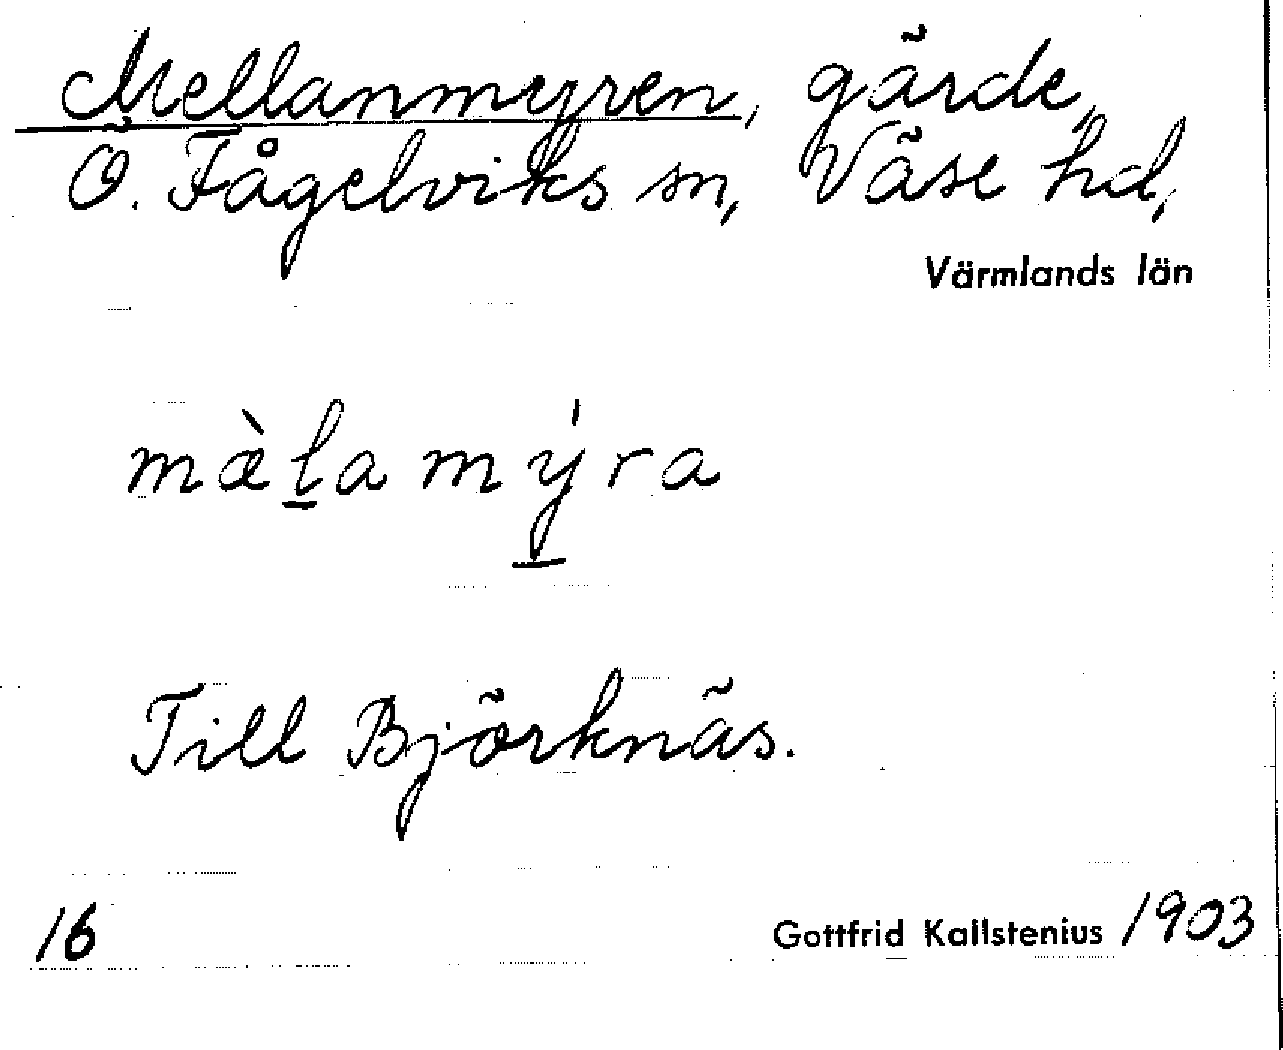 Mellanmyren, gärde,
Ö. Fågelviks sn, Väse hd,
Värmlands län
mæ̀l̲amý̲ra
Till Björknäs.
16
Gottfrid Kallstenius 1903